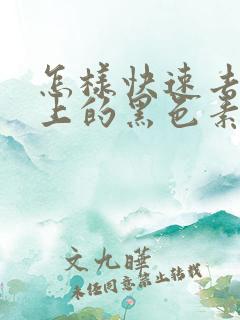 怎样快速去
上的黑色素
文九晔
未经同意禁止转载